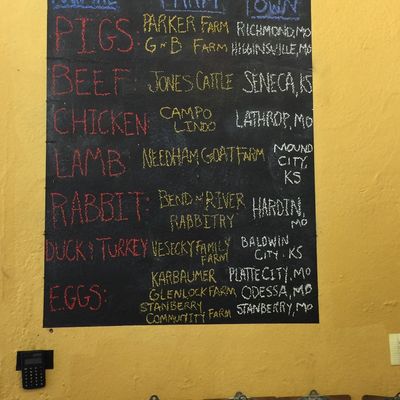 FARM TOWN
PIGS: PARKER FARM RICHMOND, MO
G~B FARM HIGGINSVILLE, MO
BEEF JONES CATTLE SENECA, KS
CHICKEN: CAMPO LINDO LATHROP, MO
LAMB NEEDHAM GOAT FARM MOUND CITY, KS
RABBIT: BEND~RIVER RABBITRY HARDIN, MO
DUCK & TURKEY VESECKY FAMILY FARM BALDWIN CITY, KS
EGGS: KARBAUMER PLATTE CITY, MO
GLENLOCK FARM ODESSA, MO
STANBERRY COMMUNITY FARM STANBERRY, MO